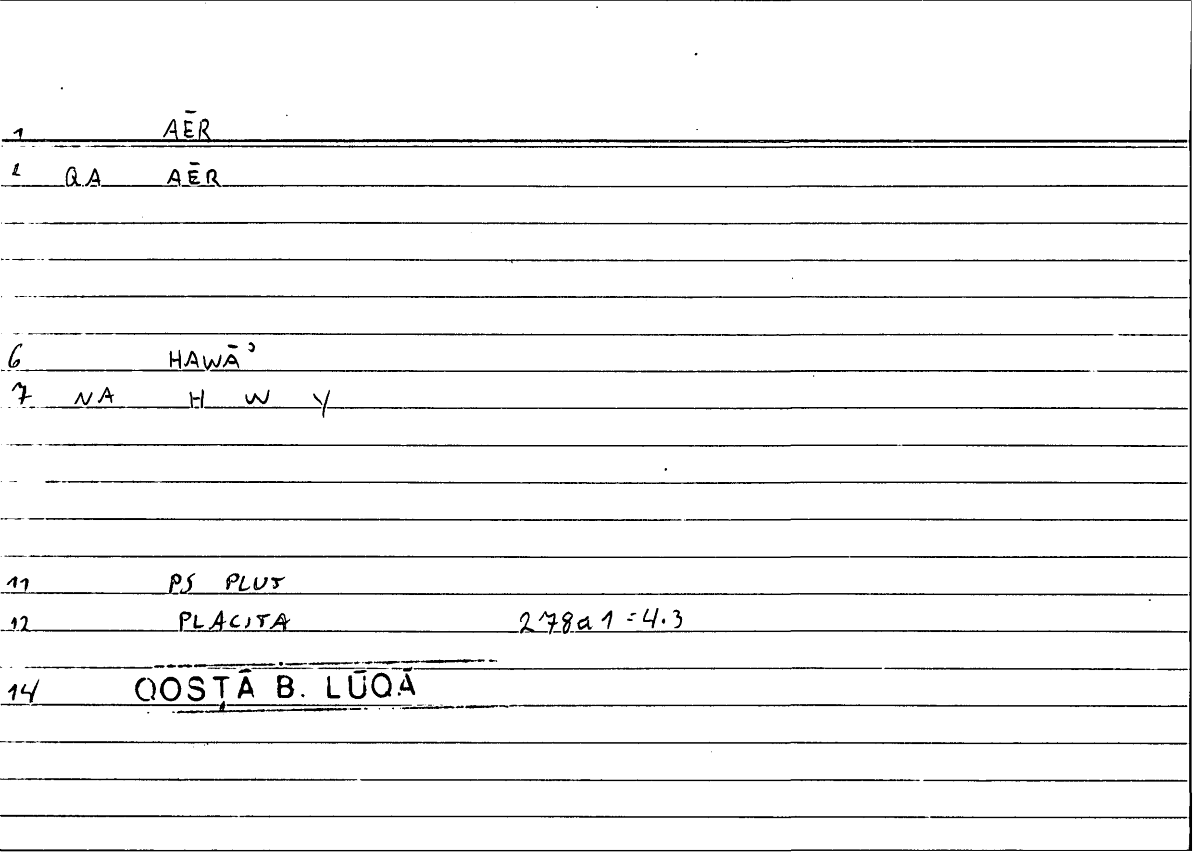 1 AĒR
2 QA AĒR
6 HAWĀʾ
7 NA H W Y
11 PS PLUT
12 PLACITA 278a1=4.3
14 QOSṬĀ B. LŪQĀ